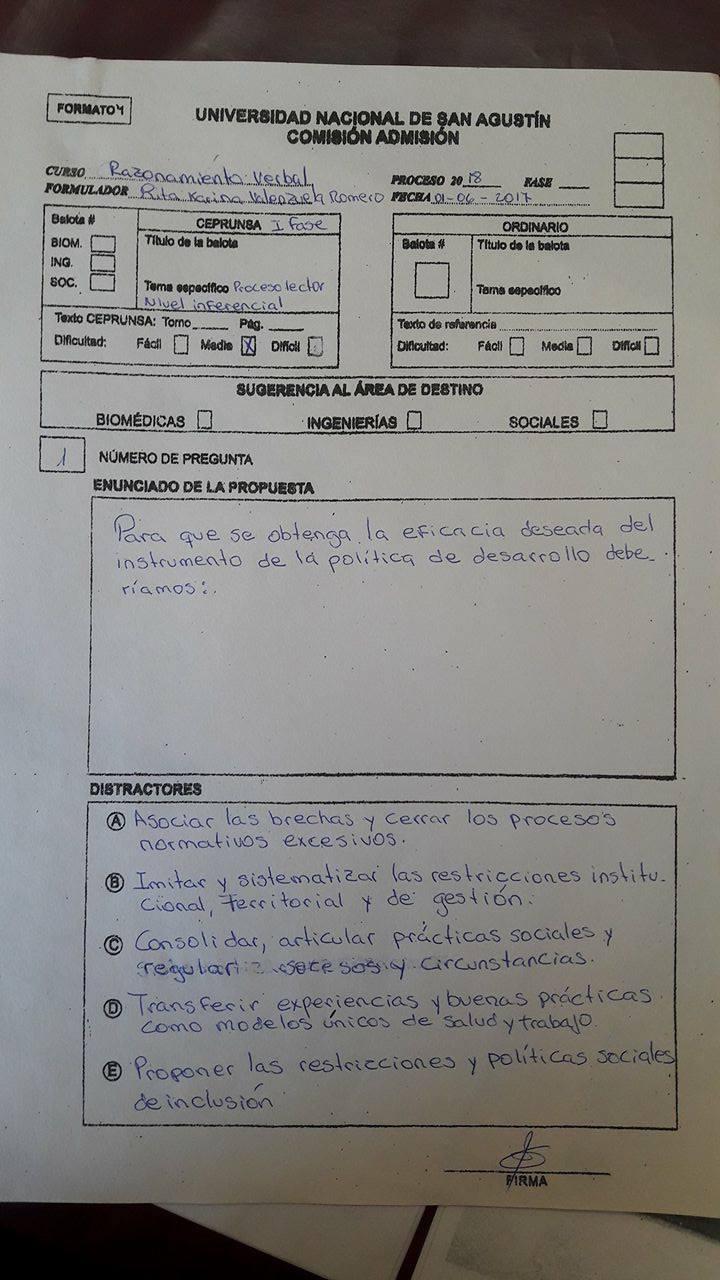 FORMATO 4
UNIVERSIDAD NACIONAL DE SAN AGUSTÍN
COMISIÓN ADMISIÓN
CURSO Razonamiento Verbal
PROCESO 20 18 FASE
FORMULADOR Rita Karina Valenzuela Romero
FECHA 01-06-2017
Balota #
CEPRUNSA I Fase
BIOM.
ING.
SOC.
Título de la balota
Tema específico Proceso lector
Nivel inferencial
Texto CEPRUNSA: Tomo Pág.
Dificultad: Fácil Media X Difícil
ORDINARIO
Balota #
Título de la balota
Tema específico
Texto de referencia
Dificultad: Fácil Media Difícil
SUGERENCIA AL ÁREA DE DESTINO
BIOMÉDICAS INGENIERÍAS SOCIALES
1 NÚMERO DE PREGUNTA
ENUNCIADO DE LA PROPUESTA
Para que se obtenga la eficacia deseada del
instrumento de la política de desarrollo debe-
ríamos:
DISTRACTORES
A Asociar las brechas y cerrar los procesos
normativos excesivos.
B Imitar y sistematizar las restricciones institu-
cional, Territorial y de gestión.
C Consolidar, articular prácticas sociales y
circunstancias.
D Transferir experiencias y buenas prácticas
como modelos únicos de salud y trabajo.
E Proponer las restricciones y políticas sociales
de inclusión
FIRMA